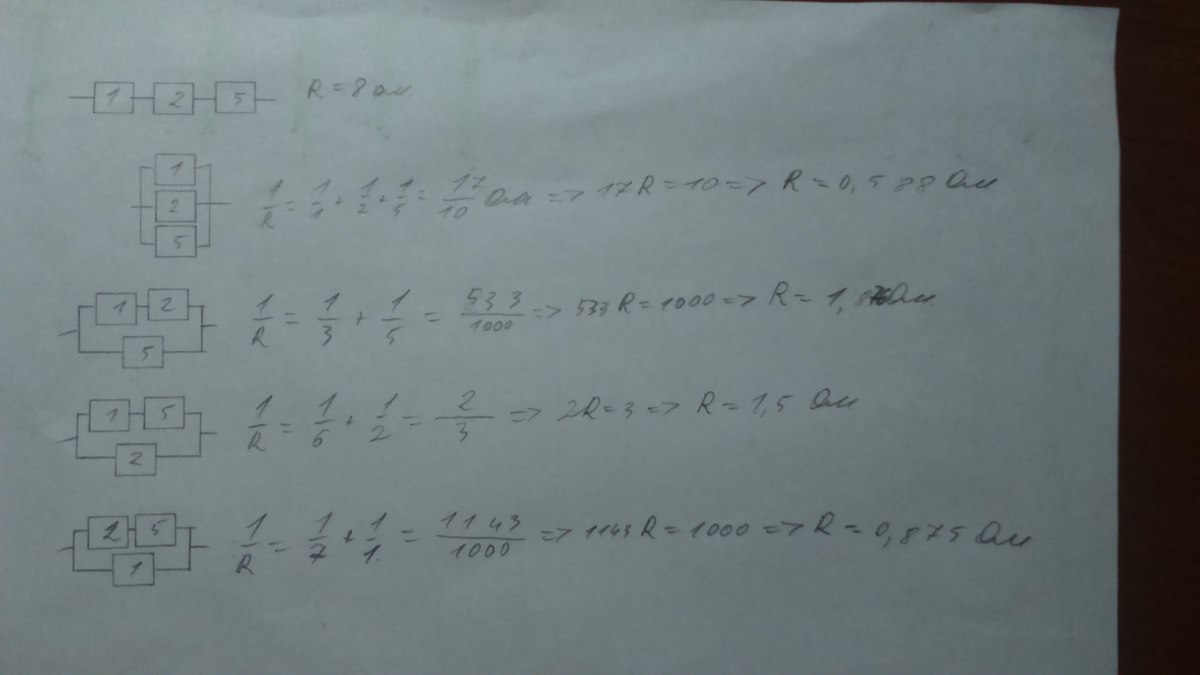 1 2 5 R = 8 Ом.
1
2
5
1/R = 1/1 + 1/2 + 1/5 = 17/10 Ом => 17R = 10 => R = 0,588 Ом
1 2
5
1/R = 1/3 + 1/5 = 533/1000 => 533 R = 1000 => R = 1,876 Ом
1 5
2
1/R = 1/6 + 1/2 = 2/3 => 2R = 3 => R = 1,5 Ом
2 5
1
1/R = 1/7 + 1/1. = 1143/1000 => 1143 R = 1000 => R = 0,875 Ом